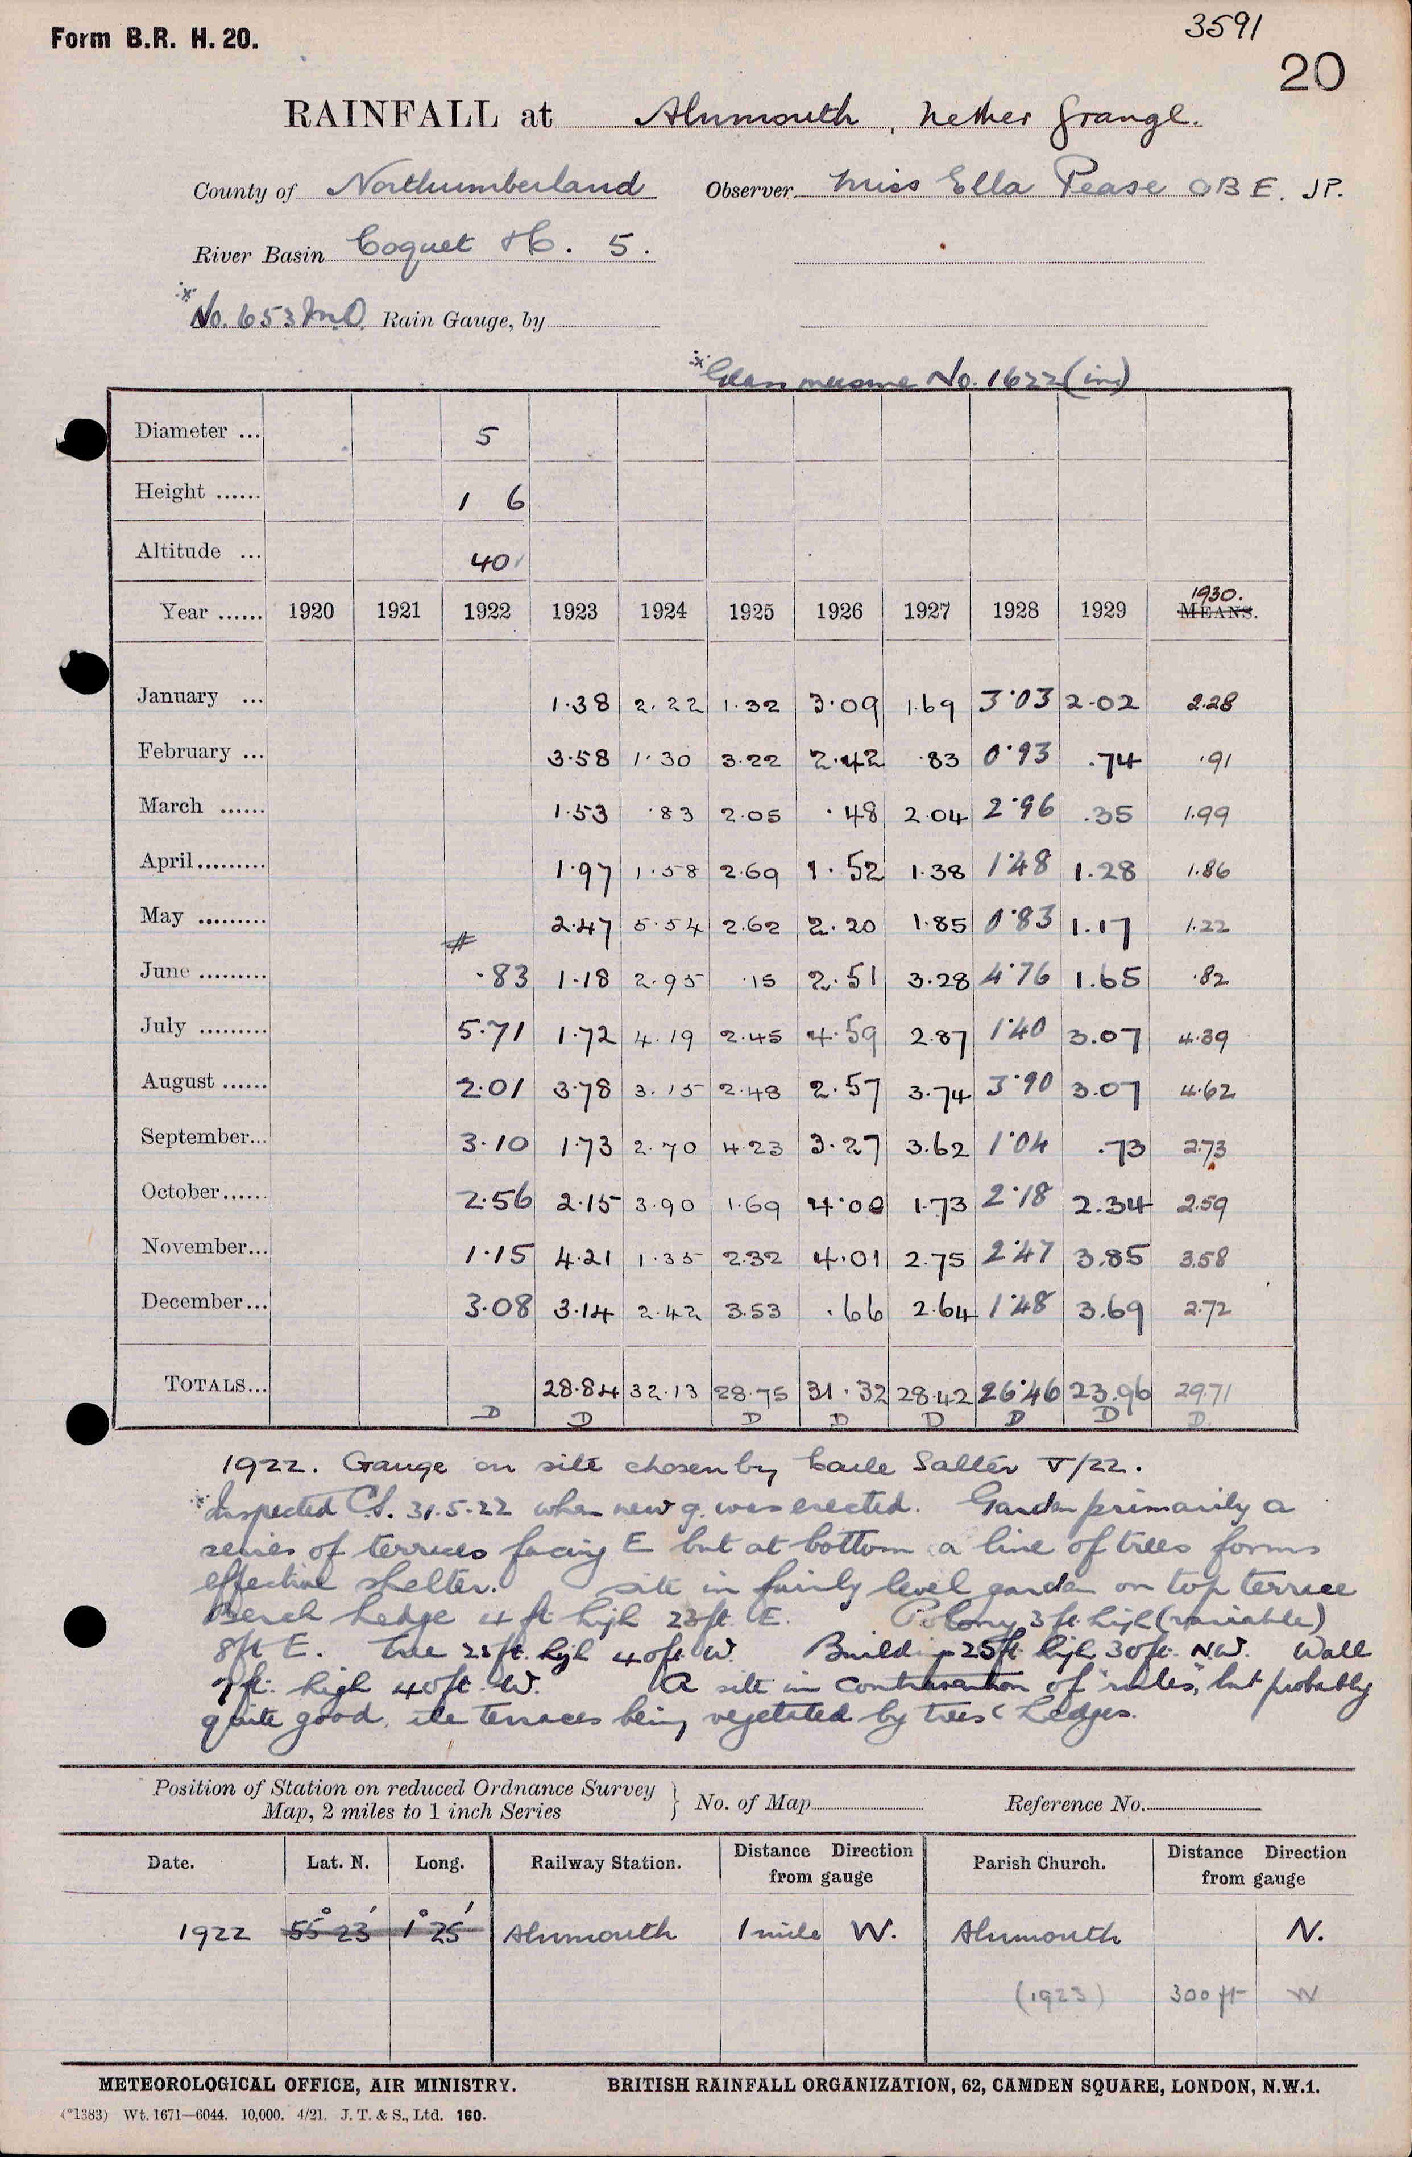 Form B.R. H. 20.
3591
20
RAINFALL at Alnmouth, Nether Grange.
County of Northumberland Observer Miss Ella Pease OBE. JP.
River Basin Coquet &c. 5.
* No. 653 M.O. Rain Gauge, by
* Glass measure No. 1622 (in)
Diameter ... 5
Height ...... 1 6
Altitude ... 40
Year ...... 1920 1921 1922 1923 1924 1925 1926 1927 1928 1929 MEANS. 1930.
January ... 1.38 2.22 1.32 3.09 1.69 3.03 2.02 2.28
February ... 3.58 1.30 3.22 2.42 .83 0.93 .74 .91
March ...... 1.53 .83 2.05 .48 2.04 2.96 .35 1.99
April......... 1.97 1.58 2.69 1.52 1.38 1.48 1.28 1.86
May ......... # 2.47 5.54 2.62 2.20 1.85 0.83 1.17 1.22
June ......... .83 1.18 2.95 .15 2.51 3.28 4.76 1.65 .82
July ......... 5.71 1.72 4.19 2.45 4.59 2.87 1.40 3.07 4.39
August ...... 2.01 3.78 3.15 2.48 2.57 3.74 3.90 3.07 4.62
September... 3.10 1.73 2.70 4.23 3.27 3.62 1.04 .73 2.73
October...... 2.56 2.15 3.90 1.69 4.00 1.73 2.18 2.34 2.59
November... 1.15 4.21 1.35 2.32 4.01 2.75 2.47 3.85 3.58
December... 3.08 3.14 2.42 3.53 .66 2.64 1.48 3.69 2.72
TOTALS... 28.84 32.13 28.75 31.32 28.42 26.46 23.96 29.71
D D D D D D D D
1922. Gauge on site chosen by Carle Salter V/22.
* Inspected C.S. 31.5.22 when new g. was erected. Garden primarily a
series of terraces facing E but at bottom a line of trees forms
effective shelter. Site in fairly level garden on top terrace
Beech hedge 4 ft high 23 ft. E. 3 ft high (variable)
8ft E. Tree 25 ft. high 40 ft W. Building 25ft high 30ft. NW. Wall
7 ft. high 40 ft. W. A site in contravention of "rules", but probably
quite good, the terraces being vegetated by trees & hedges.
Position of Station on reduced Ordnance Survey
Map, 2 miles to 1 inch Series } No. of Map Reference No.
Date. Lat. N. Long. Railway Station. Distance Direction from gauge Parish Church. Distance Direction from gauge
1922 55° 23' 1° 25' Alnmouth 1 mile W. Alnmouth N.
(1923) 300 ft W
METEOROLOGICAL OFFICE, AIR MINISTRY. BRITISH RAINFALL ORGANIZATION, 62, CAMDEN SQUARE, LONDON, N.W.1.
(*1383) Wt. 1671—6044. 10,000. 4/21. J. T. & S., Ltd. 160.